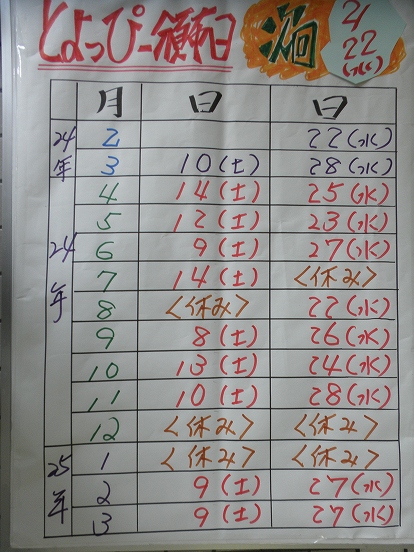 とよっぴー頒布日
2/22(水)
月 日 日
24年
2 22(水)
3 10(土) 28(水)
24年
4 14(土) 25(水)
5 12(土) 23(水)
6 9(土) 27(水)
7 14(土) <休み>
8 <休み> 22(水)
9 8(土) 26(水)
10 13(土) 24(水)
11 10(土) 28(水)
12 <休み> <休み>
25年
1 <休み> <休み>
2 9(土) 27(水)
3 9(土) 27(水)